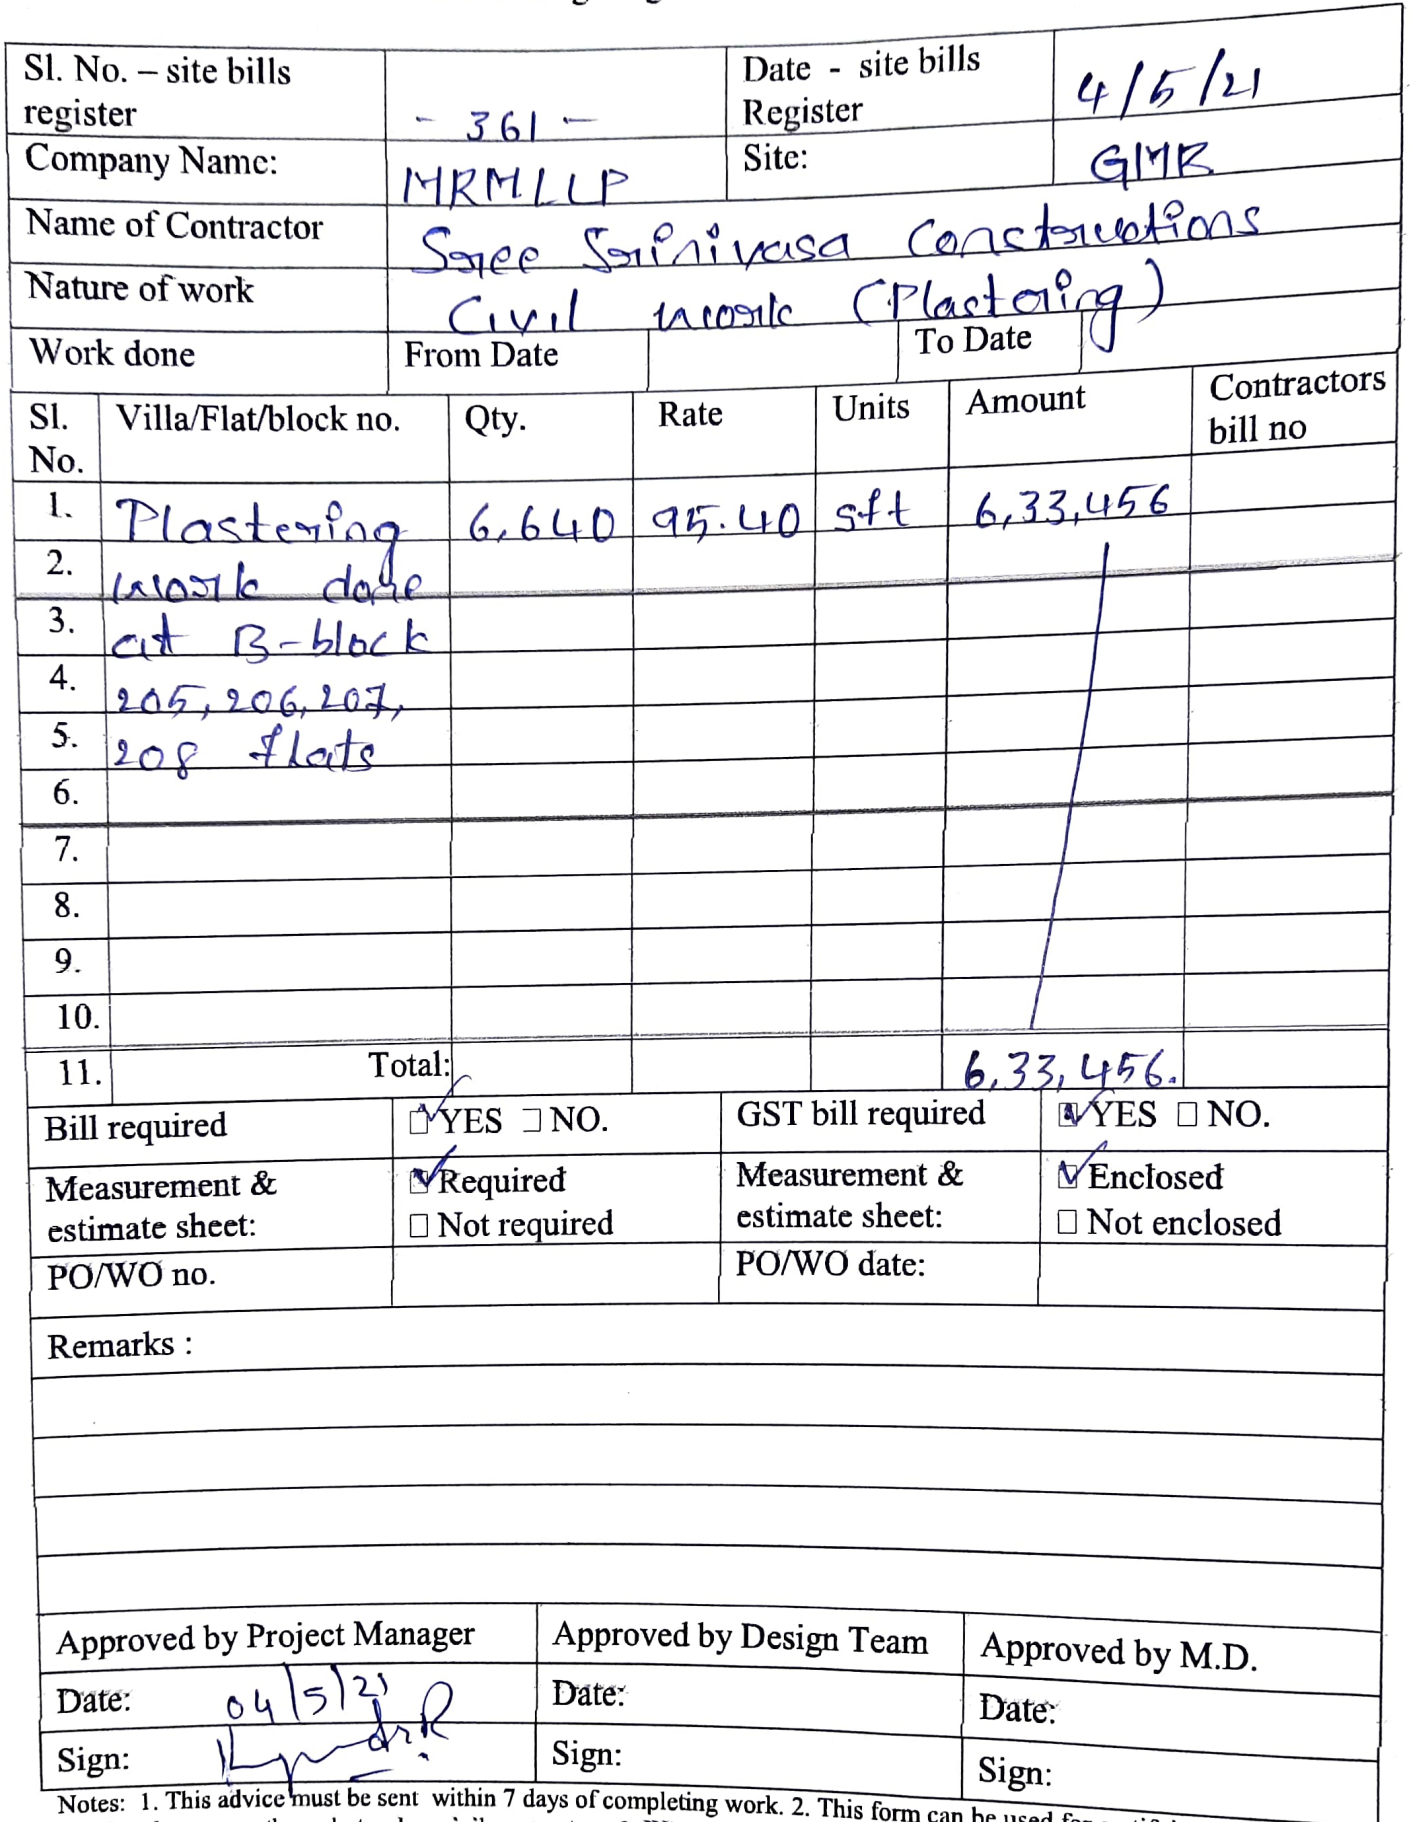 Sl. No. – site bills register - 361 - Date - site bills Register 4/5/21
Company Name: MRMLLP Site: GMR
Name of Contractor Sree Srinivasa Constructions
Nature of work Civil work (Plastering)
Work done From Date To Date
Sl. No. Villa/Flat/block no. Qty. Rate Units Amount Contractors bill no
1. Plastering 6,640 95.40 sft 6,33,456
2. work done
3. at B-block
4. 205, 206, 207,
5. 208 flats
6.
7.
8.
9.
10.
11. Total: 6,33,456.
Bill required YES NO. GST bill required YES NO.
Measurement & estimate sheet: Required Not required Measurement & estimate sheet: Enclosed Not enclosed
PO/WO no. PO/WO date:
Remarks :
Approved by Project Manager Approved by Design Team Approved by M.D.
Date: 04/5/21 Date: Date:
Sign: Sign: Sign:
Notes: 1. This advice must be sent within 7 days of completing work. 2. This form can be used for